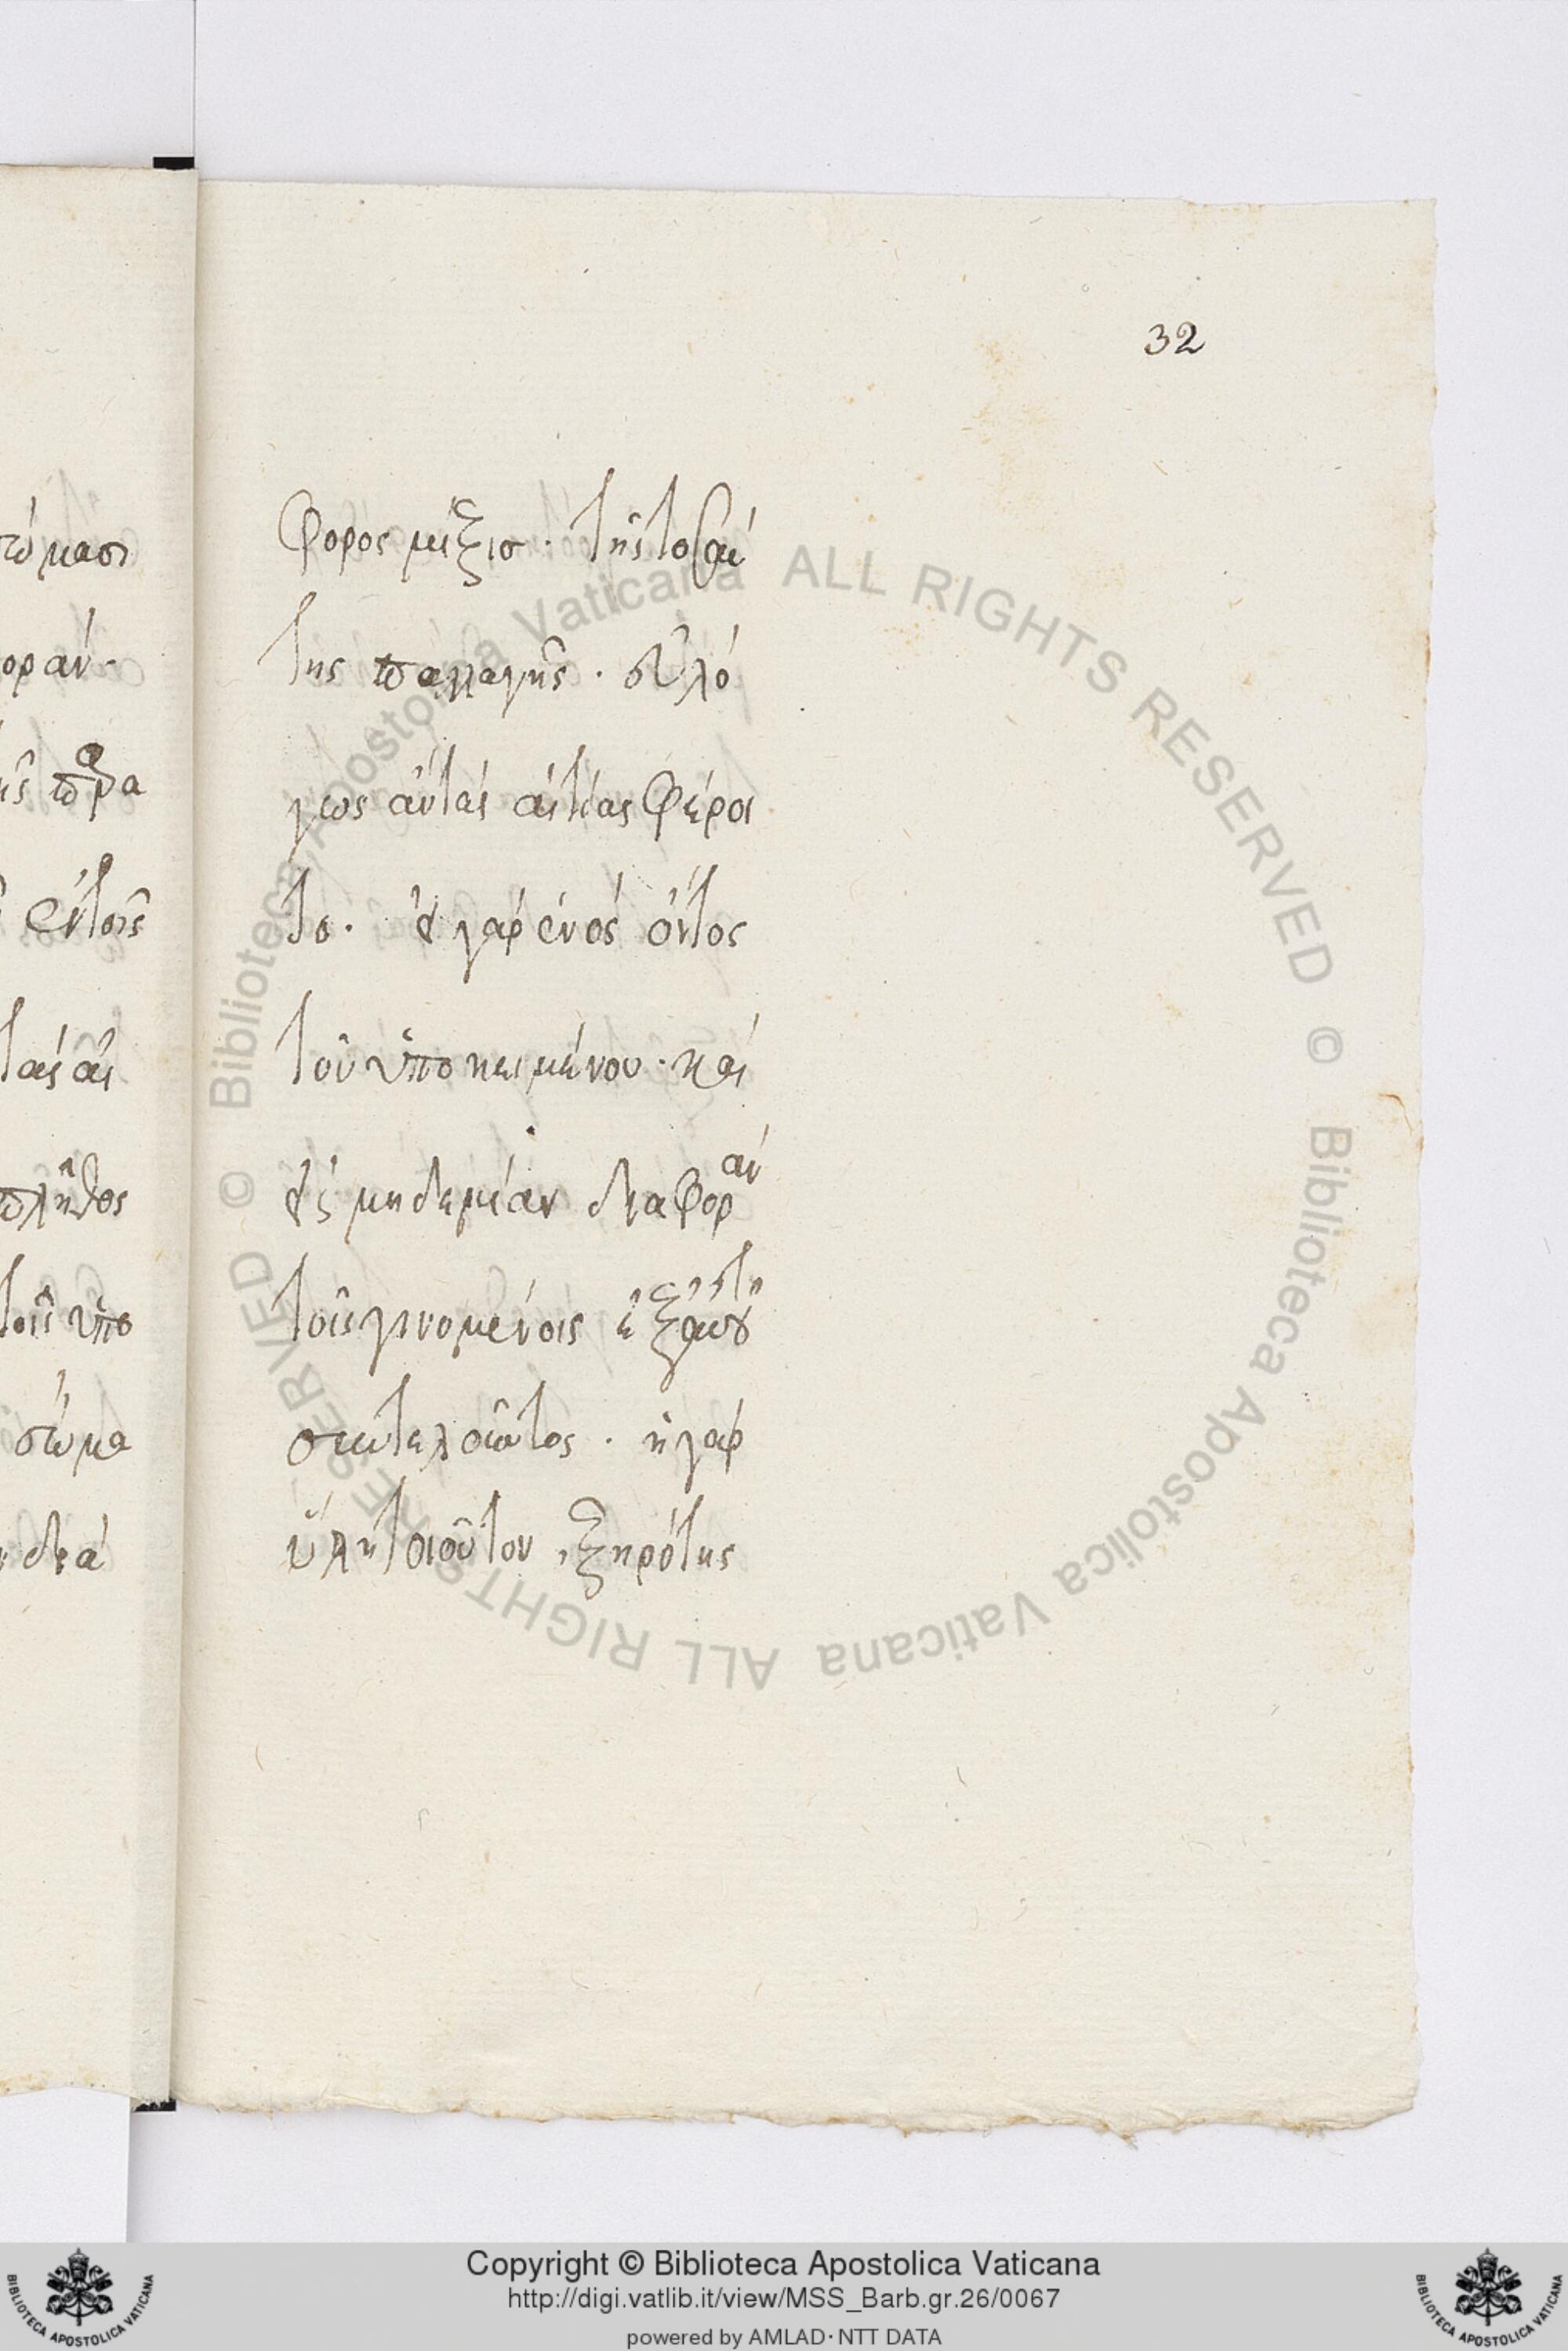 32
φορος μίξις. τῆς τοσαύ
της παλλαγῆς. εὐλό
γως αὐτὰς αἰτίας φέροι
το. οὐ γὰρ ἑνὸς ὄντος
τοῦ ὑποκειμένου. καὶ
εἰς μηδεμίαν διαφορὰν
τοῖς γινομένοις ἐξ αὐτοῦ
συντελοῦντος. ἡ γὰρ
ὕλη τοιοῦτον, ξηρότης
τώμασι
ορὰν.
ἐν τοῖς
τὰς αἰ
πλῆθος
τοῖς ὑπο
σῶμα
διὰ
Copyright © Biblioteca Apostolica Vaticana
http://digi.vatlib.it/view/MSS_Barb.gr.26/0067
powered by AMLAD · NTT DATA
© Biblioteca Apostolica Vaticana ALL RIGHTS RESERVED © Biblioteca Apostolica Vaticana ALL RIGHTS RESERVED
BIBLIOTECA APOSTOLICA VATICANA
BIBLIOTECA APOSTOLICA VATICANA